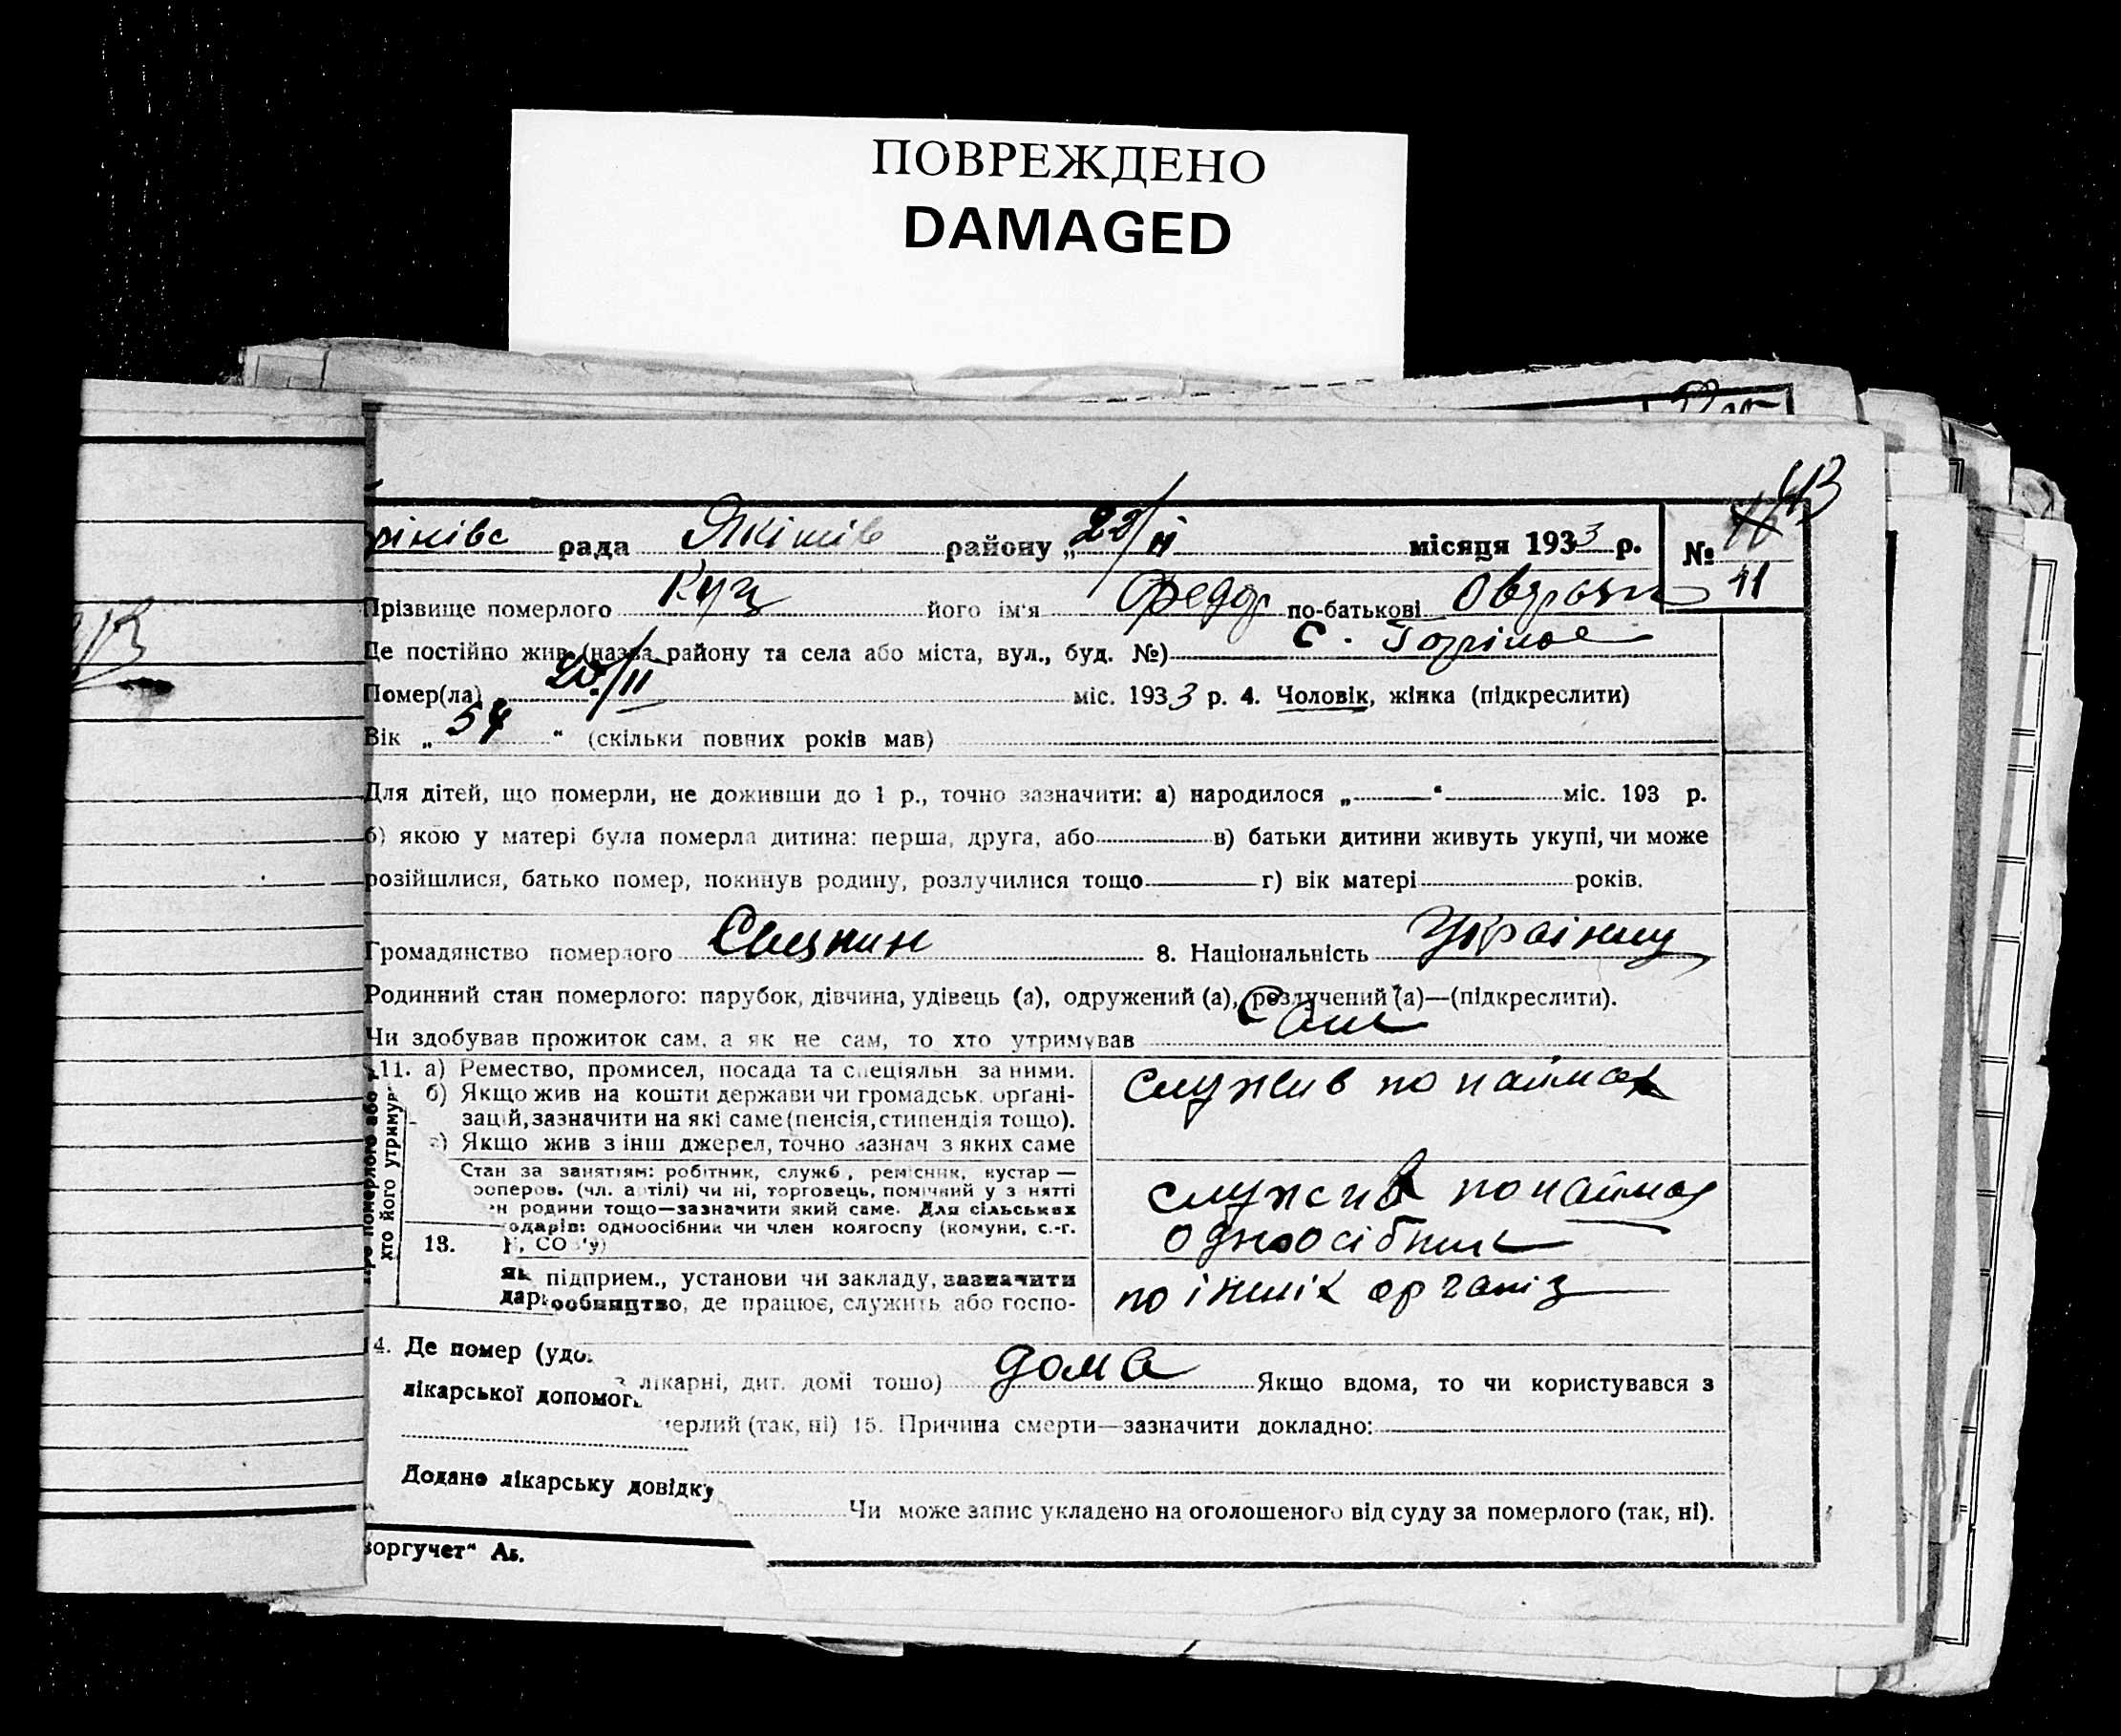 ПОВРЕЖДЕНО
DAMAGED
рінівс рада Якімів району „22/II місяця 1933 р. №
11
Прізвище померлого Куц його ім'я Федор по-батькові
Де постійно жив (назва району та села або міста, вул., буд. №) с. Горіное
Помер(ла) „20/II міс. 1933 р. 4. Чоловік, жінка (підкреслити)
Вік „54“ (скільки повних років мав)
Для дітей, що померли, не доживши до 1 р., точно зазначити: а) народилося „ “ міс. 193 р.
б) якою у матері була померла дитина: перша, друга, або в) батьки дитини живуть укупі, чи може
розійшлися, батько помер, покинув родину, розлучилися тощо г) вік матері років.
Громадянство померлого 8. Національність Українец
Родинний стан померлого: парубок, дівчина, удівець (а), одружений (а), розлучений (а)—(підкреслити).
Чи здобував прожиток сам, а як не сам, то хто утримував Сам
Про померлого або
хто його утримув
11. а) Ремество, промисел, посада та спеціяльн за ними.
б) Якщо жив на кошти держави чи громадськ. органі-
зацій, зазначити на які саме (пенсія, стипендія тощо).
в) Якщо жив з інш джерел, точно зазнач з яких саме
служив по наймах
Стан за занятіям: робітник, служб, ремісник, кустар —
кооперов. (чл. артілі) чи ні, торговець, помічний у з нятті
ен родини тощо—зазначити який саме. Для сільських
одарів: одноосібник чи член колгоспу (комуни, с.-г.
13. , СО 'у)
служив по наймах
одноосібник
як підприєм., установи чи закладу, зазначити
дар робництво, де працює, служить або госпо-
по інших організ
14. Де помер (удо
в лікарні, дит. домі тощо) дома Якщо вдома, то чи користувався з
лікарської допомог
мерлий (так, ні) 15. Причина смерти—зазначити докладно:
Додано лікарську довідку
Чи може запис укладено на оголошеного від суду за померлого (так, ні).
воргучет“ Аз.